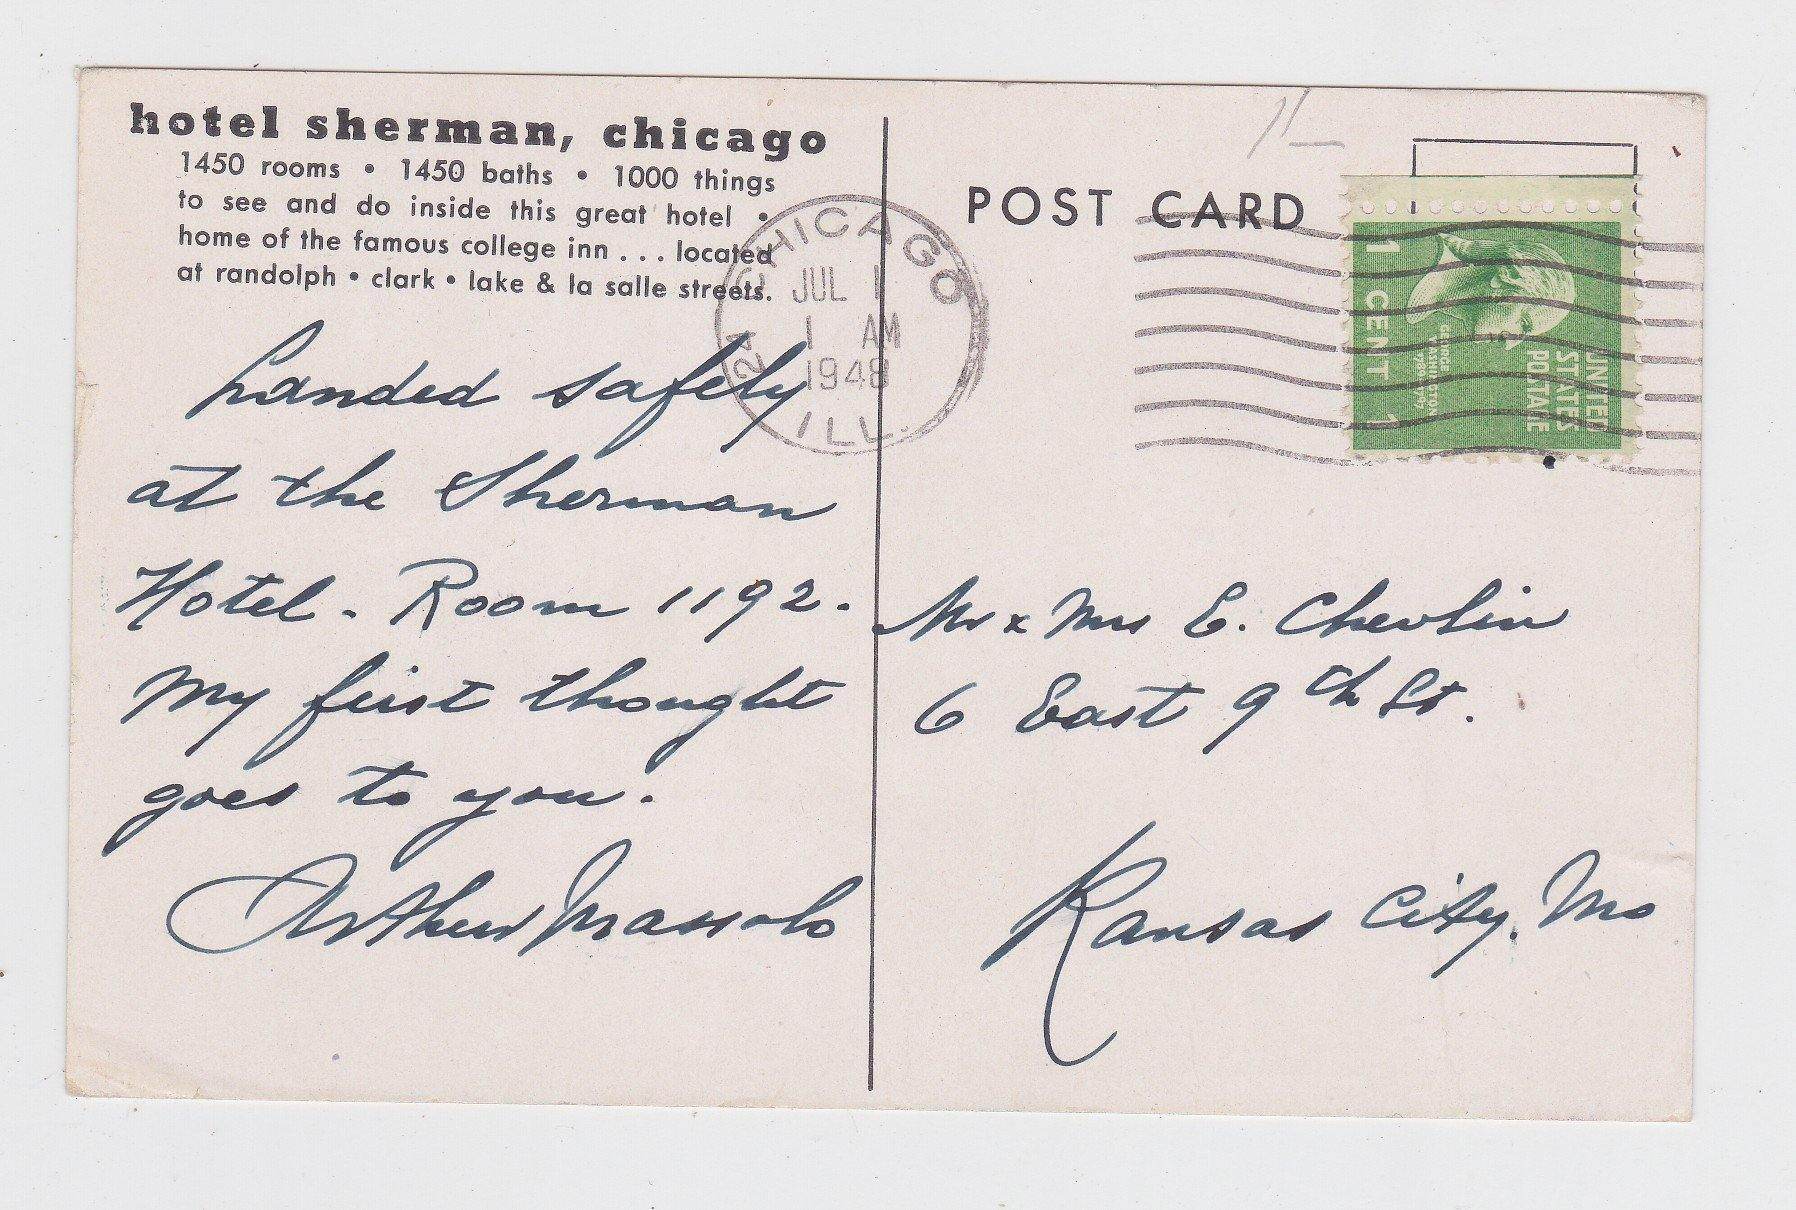 hotel sherman, chicago
1450 rooms • 1450 baths • 1000 things
to see and do inside this great hotel •
home of the famous college inn . . . located
at randolph • clark • lake & la salle streets.
Landed safely
at the Sherman
Hotel - Room 1192.
My first thought
goes to you.
Arthur
CHICAGO
24
JUL 1
1 AM
1948
ILL.
POST CARD
1 CENT 1
GEORGE
WASHINGTON
1789-1797
UNITED
STATES
POSTAGE
Mr & Mrs E. Chevlin
6 East 9th St.
Kansas City, Mo